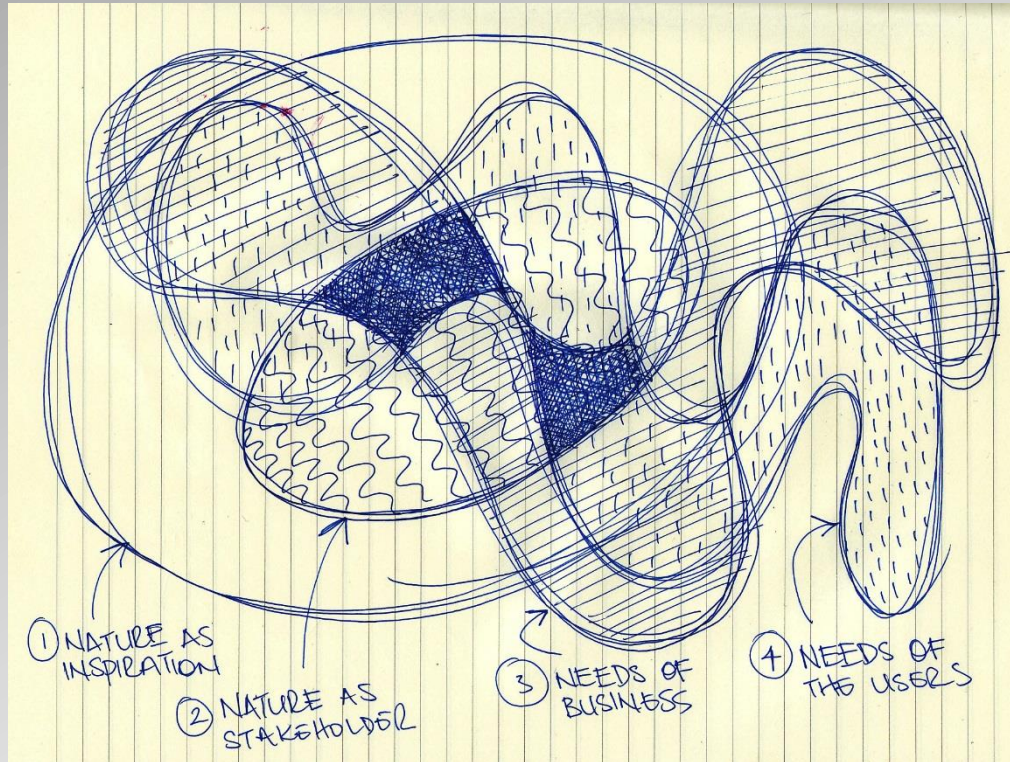 ① NATURE AS
INSPIRATION
② NATURE AS
STAKEHOLDER
③ NEEDS OF
BUSINESS
④ NEEDS OF
THE USERS